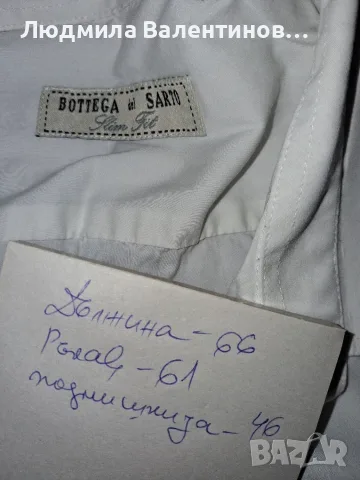 Людмила Валентинов...
BOTTEGA del SARTO
Slim Fit
Дължина - 66
Ръкав - 61
подмишница - 46
BAZAR
bg